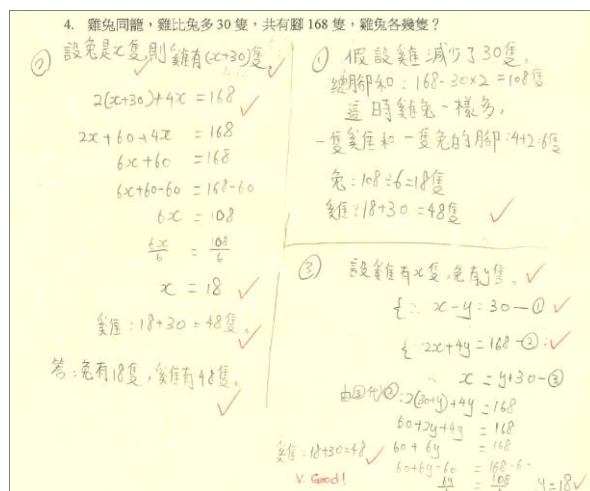 4. 雞兔同籠，雞比兔多 30 隻，共有腳 168 隻，雞兔各幾隻？
② 設兔是x隻,則雞有(x+30)隻
2(x+30)+4x = 168
2x+60+4x = 168
6x+60 = 168
6x+60-60 = 168-60
6x = 108
6x/6 = 108/6
x = 18
雞:18+30=48隻。
答:兔有18隻,雞有48隻。
① 假設雞減少了30隻,
總腳和:168-30×2=108隻
這時雞兔一樣多,
一隻雞和一隻兔的腳:4+2=6隻
兔:108÷6=18隻
雞:18+30=48隻
③ 設雞有x隻,兔有y隻。
{∴ x-y=30—①
{ 2x+4y=168—②
∴ x=y+30—③
由③代②:2(30+y)+4y=168
60+2y+4y = 168
60+6y = 168
60+6y-60 = 168-60
6y/6 = 108/6 y=18
雞:18+30=48
V. Good!